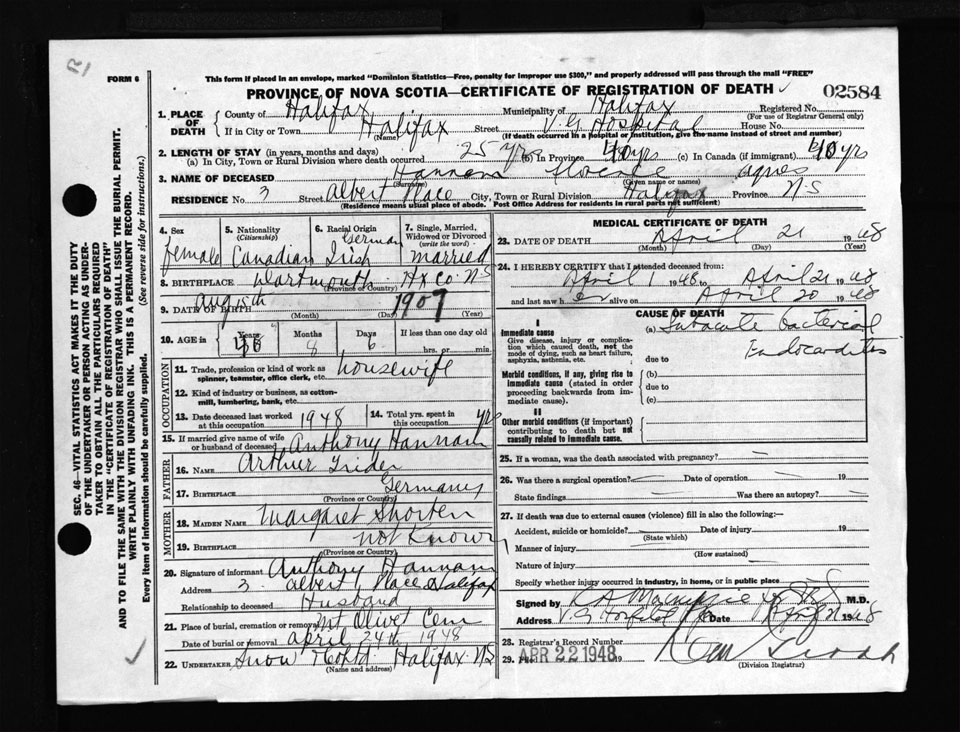 FORM 6
This form if placed in an envelope, marked "Dominion Statistics—Free, penalty for improper use $300," and properly addressed will pass through the mail "FREE"
PROVINCE OF NOVA SCOTIA—CERTIFICATE OF REGISTRATION OF DEATH
02584
1. PLACE OF DEATH
County of Halifax Municipality of Halifax Registered No.
(For use of Registrar General only)
If in City or Town Halifax Street V. G. Hospital House No.
(Name) (If death occurred in a hospital or institution, give the name instead of street and number)
2. LENGTH OF STAY (in years, months and days)
(a) In City, Town or Rural Division where death occurred 25 yrs (b) In Province 40 yrs (c) In Canada (if immigrant) 40 yrs
3. NAME OF DECEASED Hannam Florence Agnes
(Surname) (Given name or names)
RESIDENCE No. 3 Street Albert Place City, Town or Rural Division Halifax Province N-S
(Residence means usual place of abode. Post Office Address for residents in rural parts not sufficient)
4. Sex
female
5. Nationality
(Citizenship)
Canadian
6. Racial Origin
German
Irish
7. Single, Married, Widowed or Divorced
(write the word)
married
8. BIRTHPLACE Dartmouth Hx Co. N S
(Province or Country)
9. DATE OF BIRTH Aug 15th 1907
(Month) (Day) (Year)
10. AGE in
Years
Months 8
Days 6
If less than one day old
hrs. or min.
OCCUPATION
11. Trade, profession or kind of work as spinner, teamster, office clerk, etc. housewife
12. Kind of industry or business, as cotton-mill, lumbering, bank, etc.
13. Date deceased last worked at this occupation 1948
14. Total yrs. spent in this occupation yrs
15. If married give name of wife or husband of deceased Anthony Hannam
FATHER
16. NAME Arthur
17. BIRTHPLACE Germany
(Province or Country)
MOTHER
18. MAIDEN NAME Margaret Shorten
19. BIRTHPLACE not Known
(Province or Country)
20. Signature of informant Anthony Hannam
Address 3 Albert Place Halifax
Relationship to deceased Husband
21. Place of burial, cremation or removal Mt Olivet Cem
Date of burial or removal April 24th 1948
22. UNDERTAKER Snow & Co Ltd. Halifax NS
(Name and address)
MEDICAL CERTIFICATE OF DEATH
23. DATE OF DEATH April 21 1948
(Month) (Day) (Year)
24. I HEREBY CERTIFY that I attended deceased from:
April 1 1948 to April 21 1948
and last saw her alive on April 20 1948
CAUSE OF DEATH
I
Immediate cause
Give disease, injury or complication which caused death, not the mode of dying, such as heart failure, asphyxia, asthenia, etc.
(a) Subacute bacterial
Endocarditis
due to
Morbid conditions, if any, giving rise to immediate cause (stated in order proceeding backwards from immediate cause).
(b)
due to
(c)
II
Other morbid conditions (if important) contributing to death but not causally related to immediate cause.
25. If a woman, was the death associated with pregnancy?
26. Was there a surgical operation? Date of operation 19
State findings Was there an autopsy?
27. If death was due to external causes (violence) fill in also the following:—
Accident, suicide or homicide? Date of injury 19
(State which)
Manner of injury
(How sustained)
Nature of injury
Specify whether injury occurred in industry, in home, or in public place
Signed by M.D.
V. G. Hospital Date April 21 1948
28. Registrar's Record Number
29. Filed APR 22 1948 19
(Division Registrar)
SEC. 46—VITAL STATISTICS ACT MAKES IT THE DUTY
OF THE UNDERTAKER OR PERSON ACTING AS UNDER-
TAKER TO OBTAIN ALL THE PARTICULARS REQUIRED
IN THE "CERTIFICATE OF REGISTRATION OF DEATH"
AND TO FILE THE SAME WITH THE DIVISION REGISTRAR WHO SHALL ISSUE THE BURIAL PERMIT.
WRITE PLAINLY WITH UNFADING INK. THIS IS A PERMANENT RECORD.
Every item of Information should be carefully supplied. (See reverse side for instructions.)